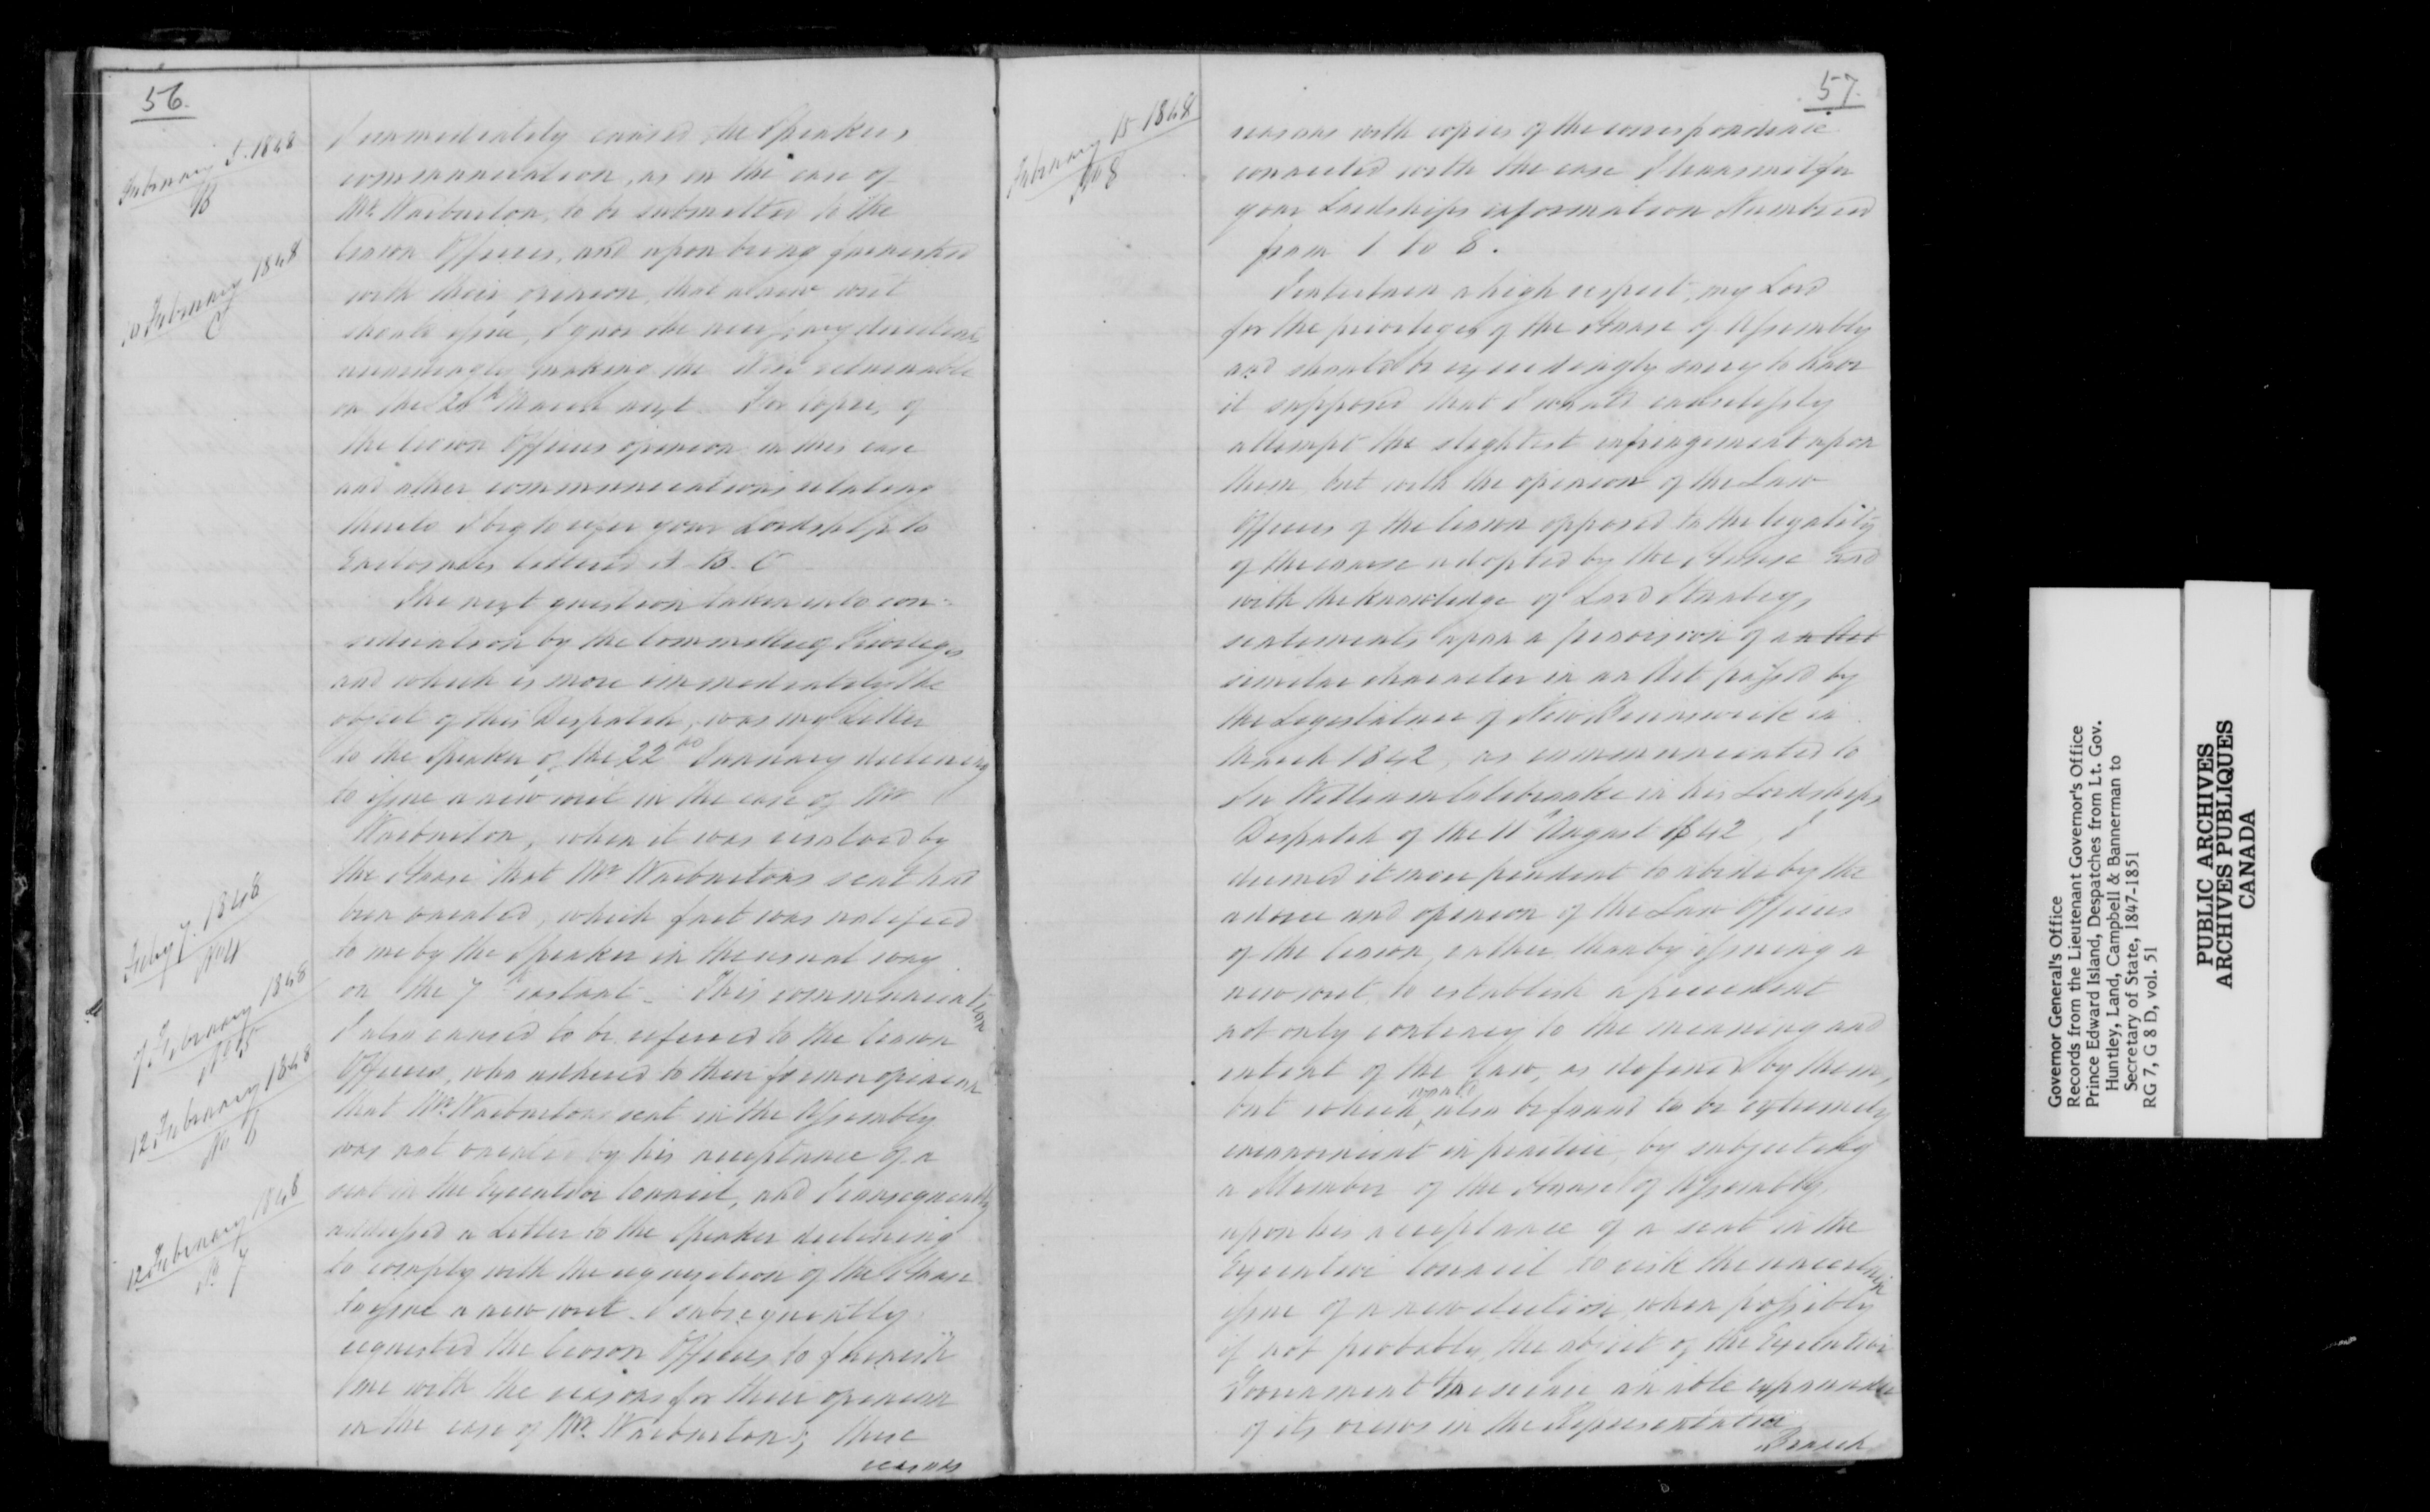 56.
February 5. 1848
B
10 February 1848
C
I immediately caused the Speakers
communication, as in the case of
Mr. Warburton, to be submitted to the
Crown Officers, and upon being furnished
with their opinion, that a new writ
should issue, I gave the necessary directions
accordingly making the Writ returnable
on the 28th March next. For copies of
the Crown Officers opinion in this case
and other communications relating
thereto I beg to refer your Lordship to
Enclosures lettered A. B. C
The next question taken into con-
sideration by the Committee of Privileges
and which is more immediately the
object of this Despatch, was my Letter
to the Speaker of the 22nd January declining
to issue a new writ in the case of Mr
Warburton, when it was resolved by
the House that Mr Warburtons seat had
been vacated, which fact was notified
to me by the Speaker in the usual way
on the 7th instant. This communication
I also caused to be referred to the Crown
Officers, who adhered to their former opinion
that Mr. Warburtons seat in the Assembly
was not vacated by his acceptance of a
seat in the Executive Council, and I consequently
addressed a Letter to the Speaker declining
to comply with the requisition of the House
to issue a new writ. I subsequently
requested the Crown Officers to furnish
me with the reasons for their opinion
in the case of Mr. Warburton; these
reasons
Feby 7. 1848
No 4
7 February 1848
No 5
12 February 1848
No 6
12 February 1848
No 7
57.
February 15 1848
No 8
reasons with copies of the correspondence
connected with the case I transmit for
your Lordships information Numbered
from 1 to 8.
I entertain a high respect, my Lord
for the privileges of the House of Assembly
and should be exceedingly sorry to have
it supposed that I would causelessly
attempt the slightest infringement upon
them, but with the opinion of the Law
Officers of the Crown opposed to the legality
of the course adopted by the House and
with the knowledge of Lord Stanleys
sentiments upon a provision of a
similar character in an Act passed by
the Legislature of New Brunswick in
March 1842, as communicated to
Sir William Colebrooke in his Lordships
Despatch of the 11th August 1842, I
deemed it more prudent to abide by the
advice and opinion of the Law Officers
of the Crown, rather than by issuing a
new writ, to establish a precedent
not only contrary to the meaning and
intent of the law, as defined by them,
but which would also be found to be extremely
inconvenient in practice, by subjecting
a Member of the House of Assembly,
upon his acceptance of a seat in the
Executive Council to risk the uncertain
issue of a new election, when possibly
if not probably, the object of the Executive
Government to secure an able expounder
of its views in the Representative
Branch
Governor General's Office
Records from the Lieutenant Governor's Office
Prince Edward Island, Despatches from Lt. Gov.
Huntley, Land, Campbell & Bannerman to
Secretary of State, 1847-1851
RG 7, G 8 D, vol. 51
PUBLIC ARCHIVES
ARCHIVES PUBLIQUES
CANADA